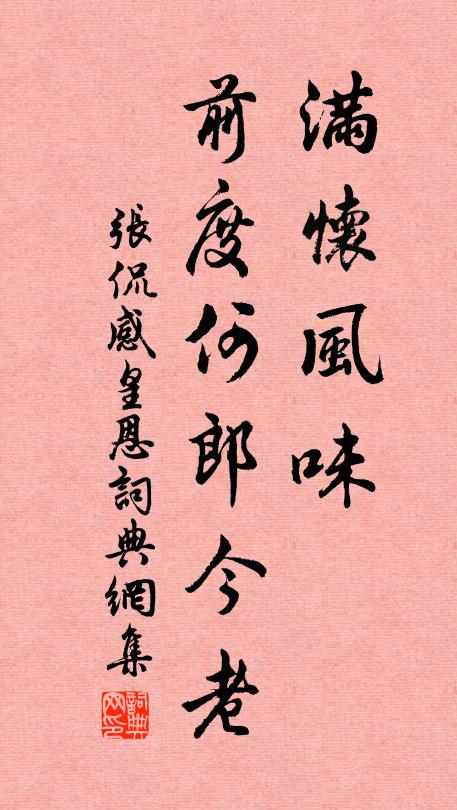 滿懷風味
前度何郎今老
張侃感皇恩詞典網集
詞典网印